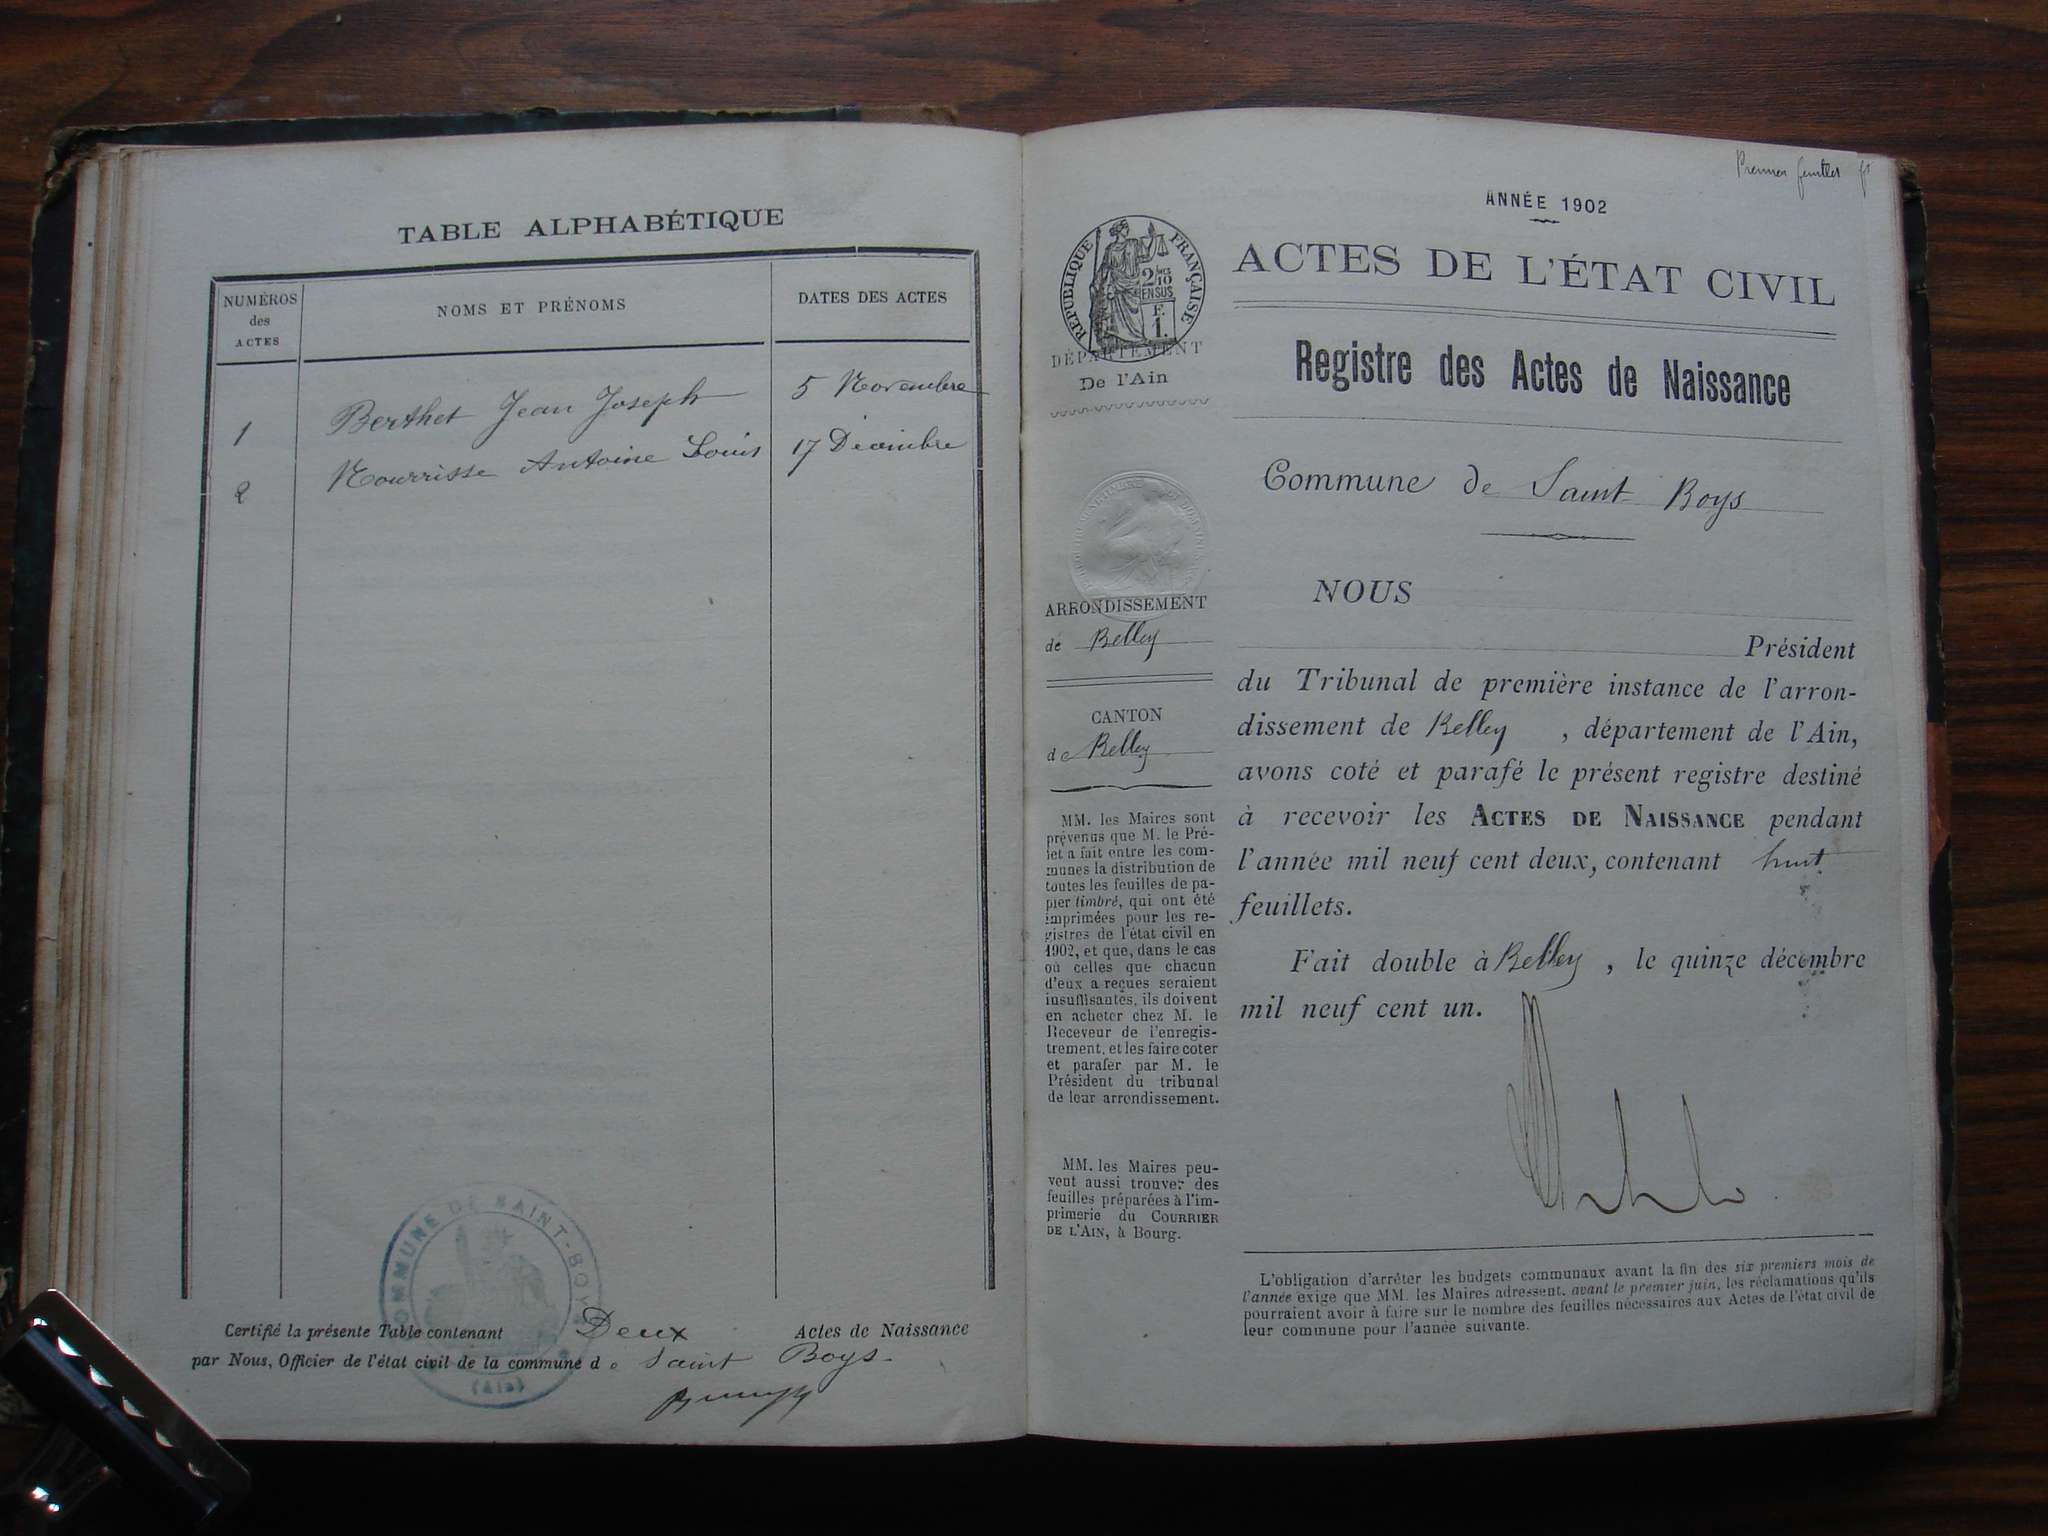 TABLE ALPHABÉTIQUE
NUMÉROS
des
ACTES
NOMS ET PRÉNOMS
DATES DES ACTES
1 Berthet Jean Joseph 5 Novembre
2 Nourrisse Antoine Louis 17 Décembre
COMMUNE DE SAINT-BOYS
(Ain)
Certifié la présente Table contenant Deux Actes de Naissance
par Nous, Officier de l'état civil de la commune de Saint Boys
Premier feuillet
ANNÉE 1902
ACTES DE L'ÉTAT CIVIL
RÉPUBLIQUE FRANÇAISE
2/10
EN SUS
F.
1.
DÉPARTEMENT
De l'Ain
Registre des Actes de Naissance
Commune de Saint Boys
ARRONDISSEMENT
de Belley
CANTON
de Belley
MM. les Maires sont
prévenus que M. le Pré-
fet a fait entre les com-
munes la distribution de
toutes les feuilles de pa-
pier timbré, qui ont été
imprimées pour les re-
gistres de l'état civil en
1902, et que, dans le cas
où celles que chacun
d'eux a reçues seraient
insuffisantes, ils doivent
en acheter chez M. le
Receveur de l'enregis-
trement, et les faire coter
et parafer par M. le
Président du tribunal
de leur arrondissement.
MM. les Maires peu-
vent aussi trouver des
feuilles préparées à l'im-
primerie du COURRIER
DE L'AIN, à Bourg.
NOUS
Président
du Tribunal de première instance de l'arron-
dissement de Belley , département de l'Ain,
avons coté et parafé le présent registre destiné
à recevoir les ACTES DE NAISSANCE pendant
l'année mil neuf cent deux, contenant huit
feuillets.
Fait double à Belley , le quinze décembre
mil neuf cent un.
L'obligation d'arrêter les budgets communaux avant la fin des six premiers mois de
l'année exige que MM. les Maires adressent, avant le premier juin, les réclamations qu'ils
pourraient avoir à faire sur le nombre des feuilles nécessaires aux Actes de l'état civil de
leur commune pour l'année suivante.